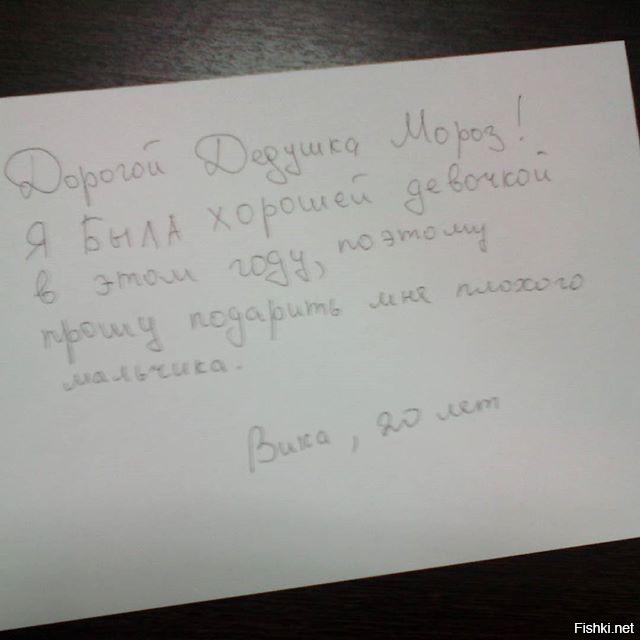 Дорогой Дедушка Мороз!
Я БЫЛА хорошей девочкой
в этом году, поэтому
прошу подарить мне плохого
мальчика.
Вика, 20 лет
Fishki.net